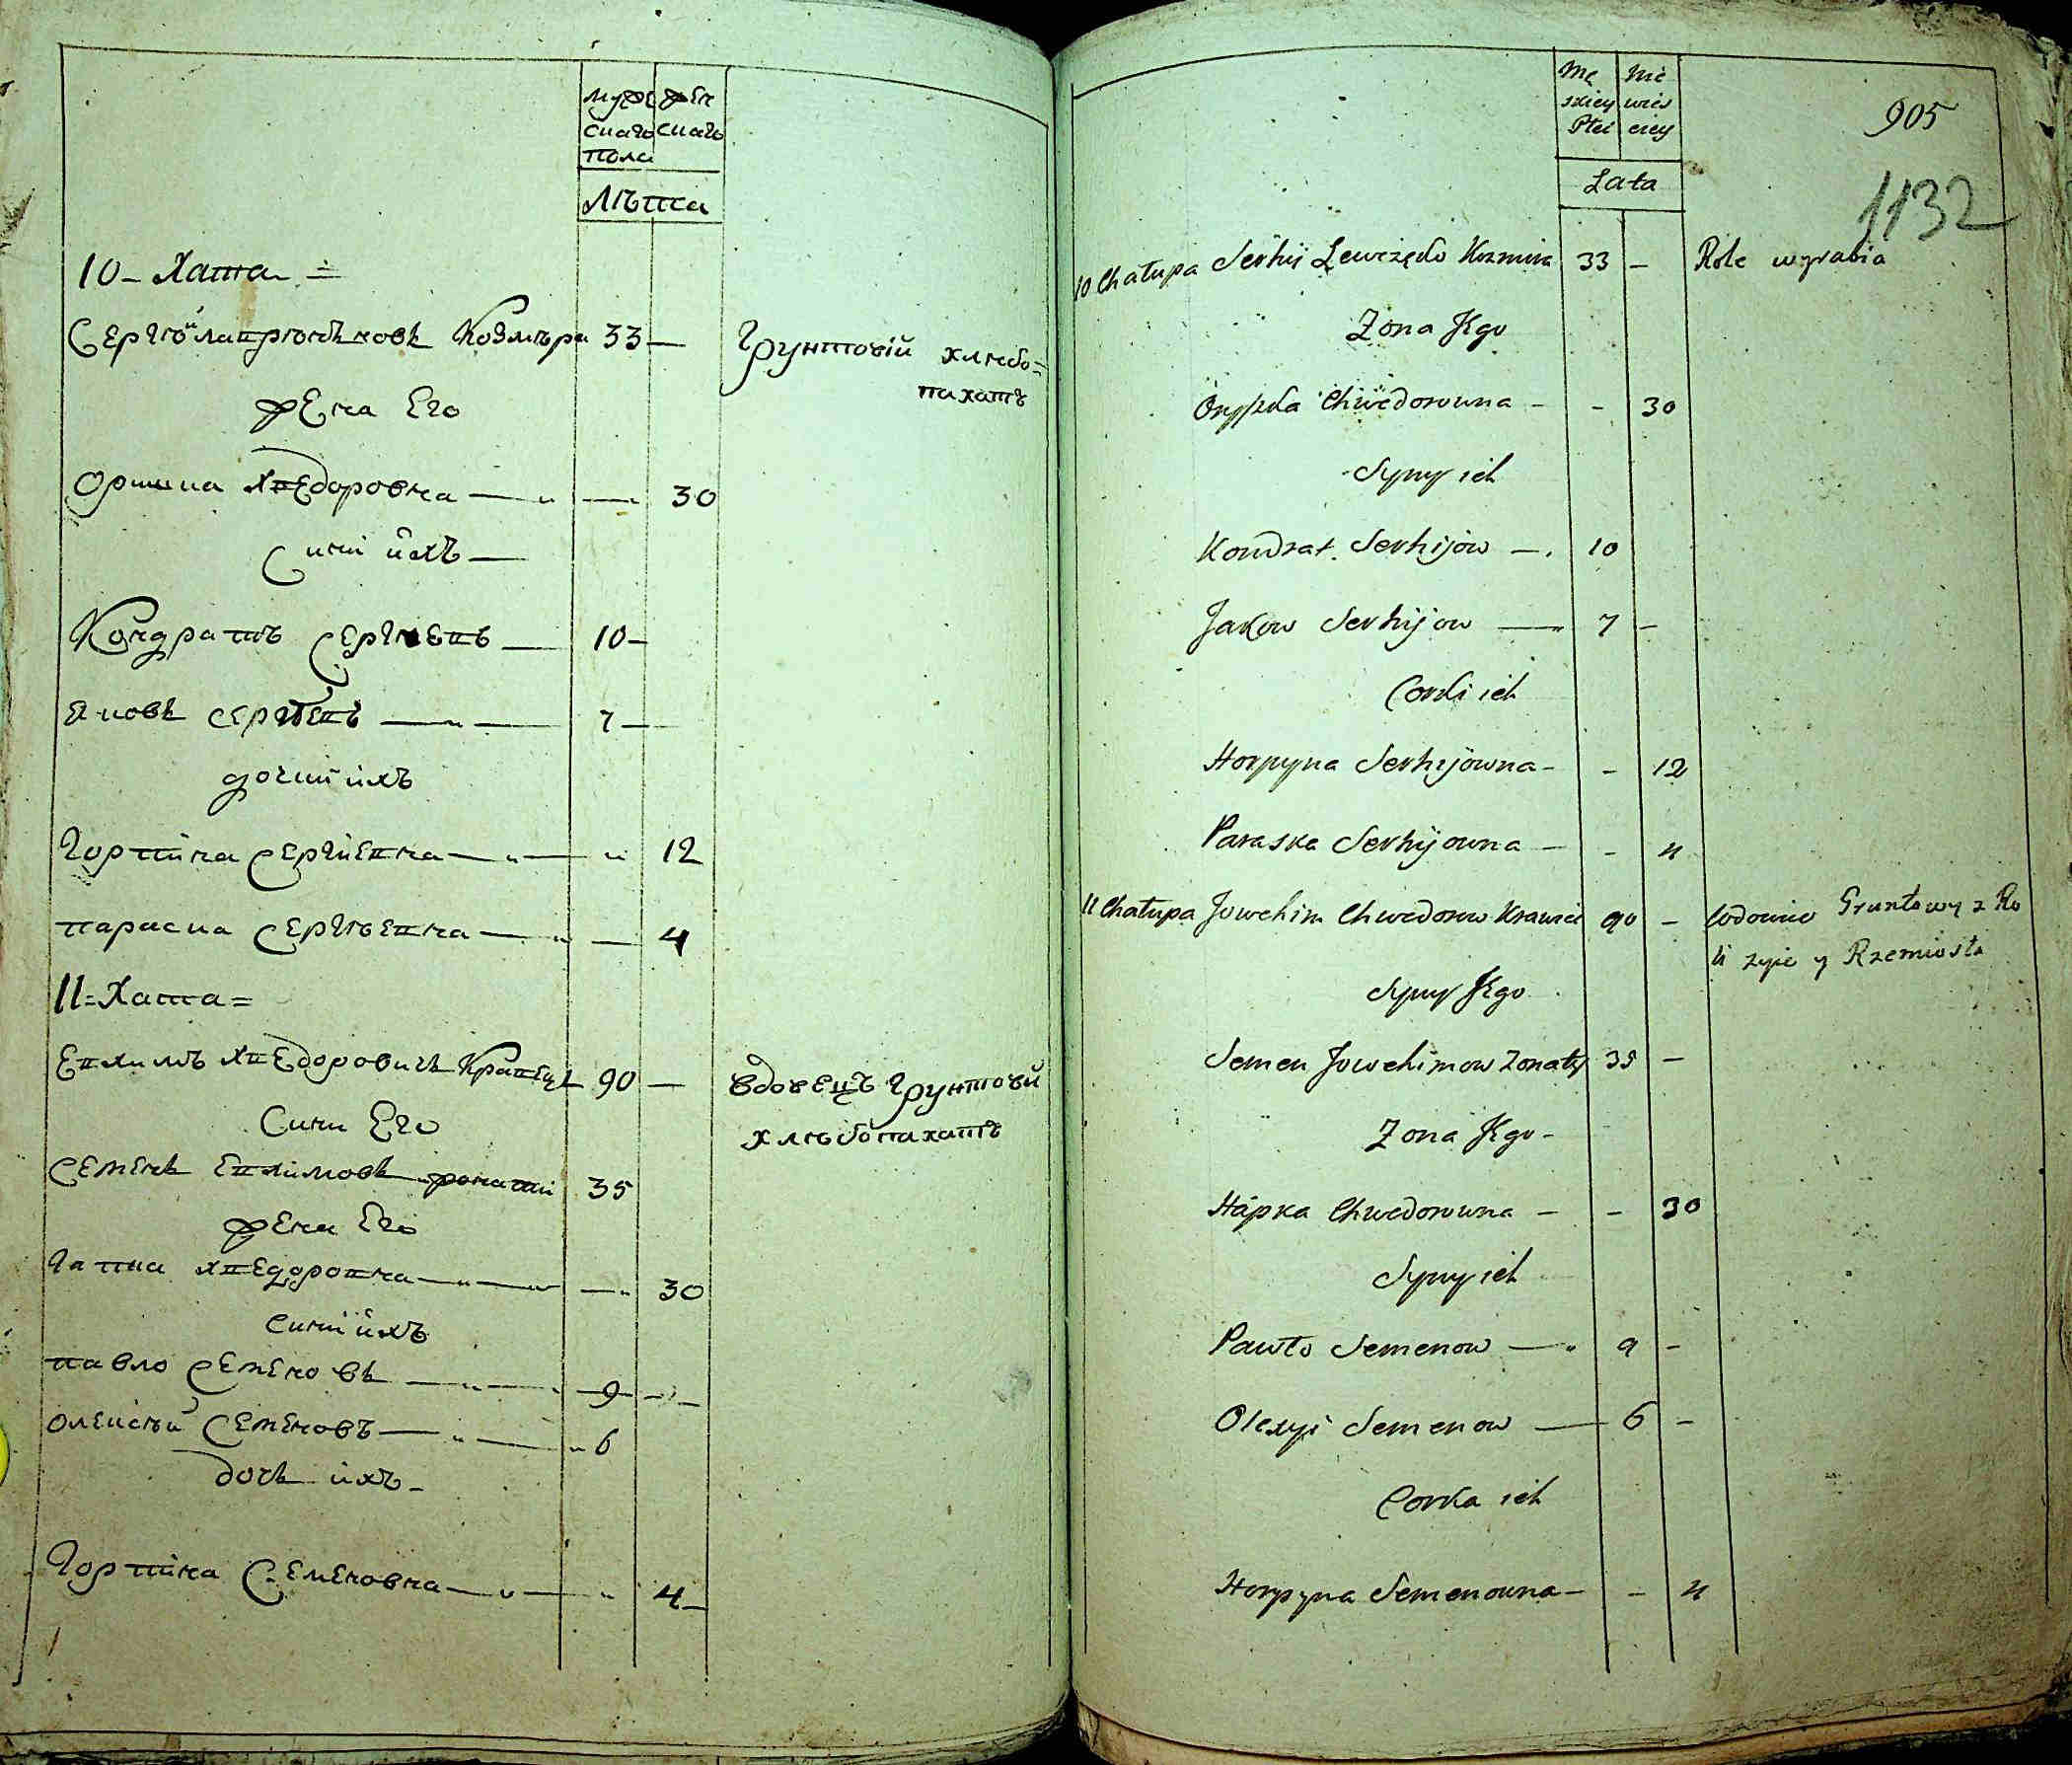 муже жен
скаго скаго
пола
Лѣта
10 – Хата =
Сергѣй Козмѣра 33 —
Грунтовій хлѣбо=
пахатъ
жена Его
Оришка хведоровна — „ — 30
Сини ихъ —
Кондратъ Сергѣевъ — 10 –
Яковъ Сергѣевъ — „ — 7 —
дочки ихъ
Горпина Сергиевна — „ — „ 12
Параска Сергѣевна — „ — 4
11 = Хата =
Евхимъ хведоровичъ Кравецъ 90 —
вдовецъ грунтовій
хлѣбопахатъ
Сини Его
Семенъ Евхимовъ жонатій 35
жена Его
Гапка хведоровна — „ — „ 30
Сини ихъ
Павло Семеновъ — „ — 9 —
Олексѣй Семеновъ — „ — „ 6
дочь ихъ –
Горпина Семеновна — „ — „ 4 –
Mę Nie
skiey wies
Płci ciey
Lata
905
1132
10 Chałupa Serhij Kozmira 33 – Role wyrabia
Zona Jego
Oryszka Chwedorowna – – 30
Synÿ ich
Kondrat Serhijow — 10
Jakow Serhijow — 7 –
Corki ich
Horpyna Serhijowna – – 12
Paraska Serhijowna – – 4
11 Chałupa Jowchim Chwedorow Krawiec 90 – Wdowiec Gruntowy z Ro
li zyie y Rzemiosła
Syny Jego
Semen Jowchimow Zonaty 35 –
Zona Jego –
Hapka Chwedorowna – – 30
Syny ich
Pawło Semenow — 9 –
Olexyi Semenow — 6 –
Corka ich
Horpyna Semenowna – – 4